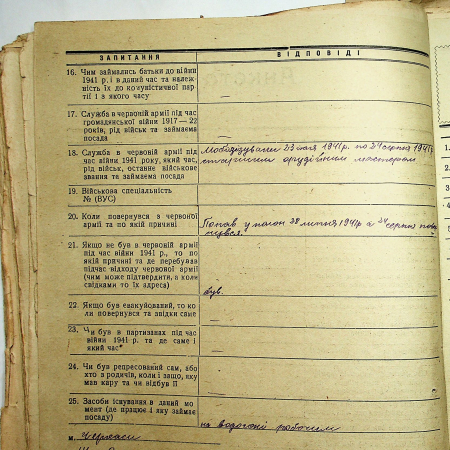 ЗАПИТАННЯ ВІДПОВІДІ
16. Чим займались батьки до війни
1941 р. і в даний час та належ-
ність їх до комуністичної пар-
тії і з якого часу
17. Служба в червоній армії під час
громадянської війни 1917—22
років, рід військ та займаєма
посада
—
18. Служба в червоній армії під
час війни 1941 року, який час,
рід військ, останнє військове
звання та займаєма посада
Мобілізували 23 мая 1941р. по 24 серпня 1941р.
старшим орудійним мастером
19. Військова спеціальність
№ (ВУС)
—
20. Коли повернувся з червоної
армії та по якій причині
Попав у полон 28 липня 1941р а 24 серпня повер
нувся.
21. Якщо не був в червоній армії
під час війни 1941 р., то по
якій причині та де перебував
підчас відходу червоної армії
(чим може підтвердити, а коле
свідками то їх адреса)
був.
22. Якщо був евакуйований, то ко
ли повернувся та звідки саме
—
23. Чи був в партизанах під час
війни 1941 р. та де саме і
який час
—
24. Чи був репресований сам, або
хто з родичів, коли і защо, яку
мав кару та чи відбув її
—
25. Засоби існування в даний мо
мент (де працює і яку займає
посаду)
на водогоні робочим
м. Черкаси